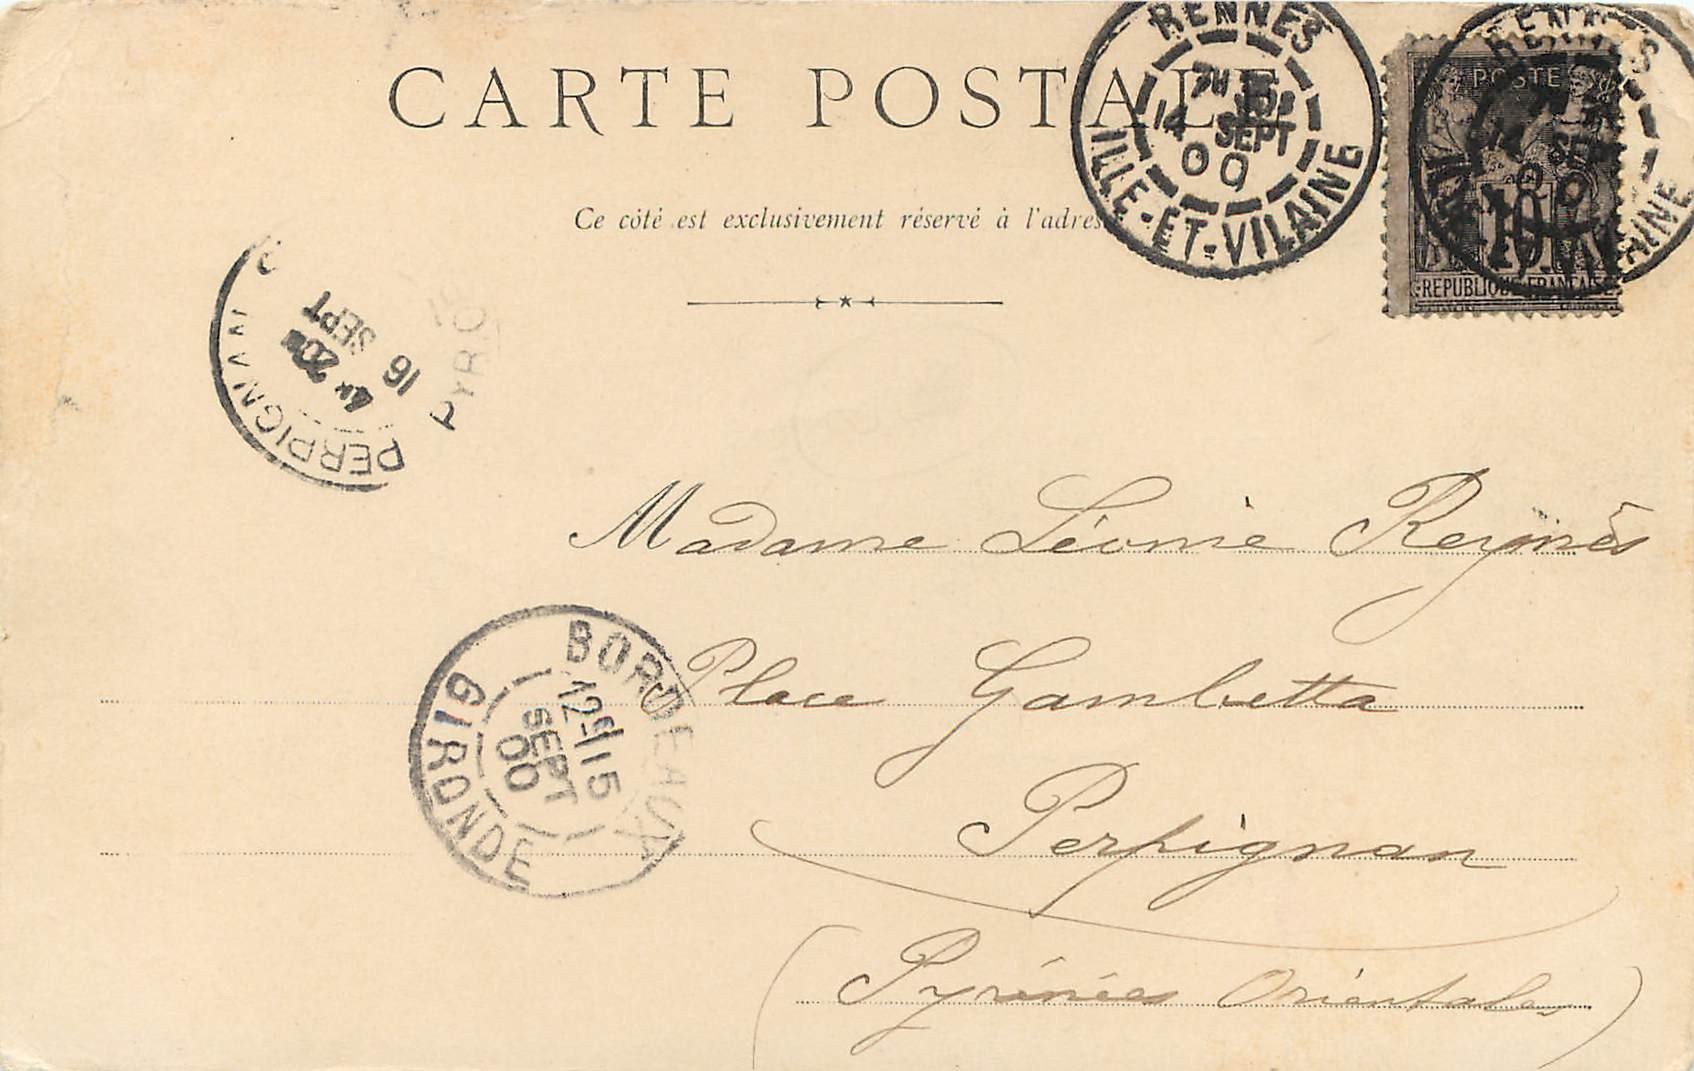 CARTE POSTALE
Ce côté est exclusivement réservé à l'adres
RENNES
7H
14 SEPT
00
ILLE-ET-VILAINE
POSTES
10
REPUBLIQUE FRANCAISE
RENNES
14 SEPT
00
VILAINE
PERPIGNAN
4H 20
16
SEPT
PYR.
Madame Léonie Reynès
BORDEAUX
12 15
SEPT
00
GIRONDE
Place Gambetta
Perpignan
(Pyrénées Orientales)